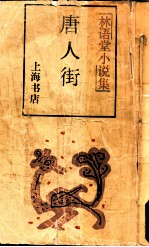 林语堂小说集
唐人街
上海书店